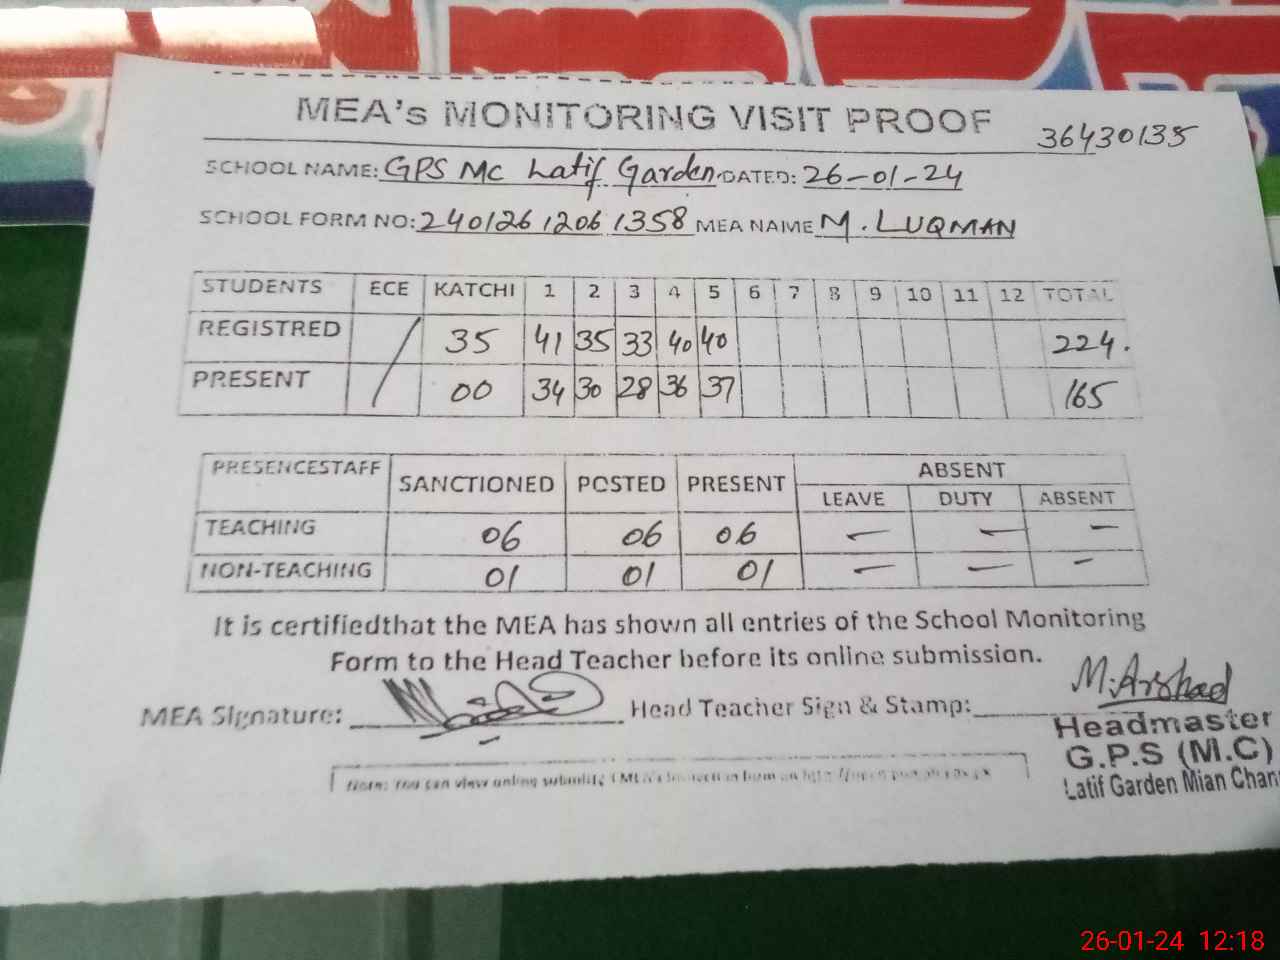 MEA's MONITORING VISIT PROOF 36430135
SCHOOL NAME: GPS MC Latif Garden DATED: 26-01-24
SCHOOL FORM NO: 240126 1206 1358 MEA NAME M. LUQMAN
STUDENTS ECE KATCHI 1 2 3 4 5 6 7 8 9 10 11 12 TOTAL
REGISTRED 35 41 35 33 40 40 224.
PRESENT 00 34 30 28 36 37 165
PRESENCESTAFF SANCTIONED POSTED PRESENT ABSENT
LEAVE DUTY ABSENT
TEACHING 06 06 06 — — —
NON-TEACHING 01 01 01 — — —
It is certifiedthat the MEA has shown all entries of the School Monitoring
Form to the Head Teacher before its online submission.
MEA Signature: Head Teacher Sign & Stamp: M. Arshad
Headmaster
G.P.S (M.C)
Latif Garden Mian Chan
You can view online
26-01-24 12:18